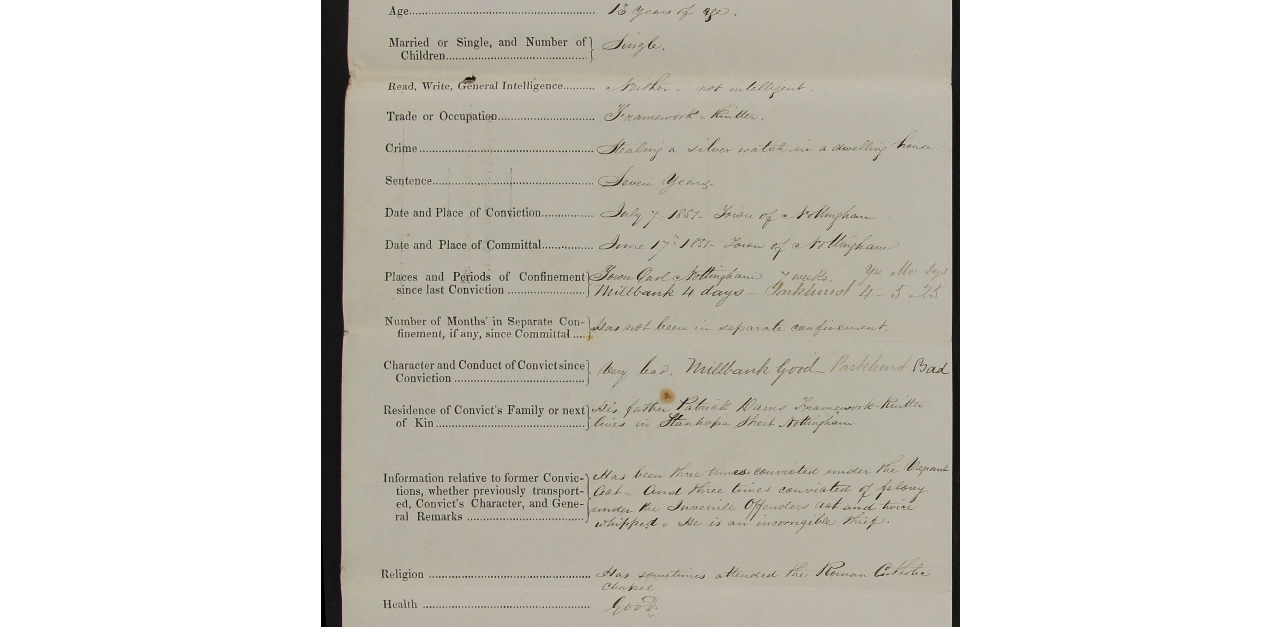 Age 13 Years of age.
Married or Single, and Number of } Single.
Children
Read, Write, General Intelligence Neither - not intelligent.
Trade or Occupation Framework - Knitter.
Crime Stealing a silver watch in a dwelling house
Sentence Seven Years.
Date and Place of Conviction July 7 1851 - Town of Nottingham
Date and Place of Committal June 17th 1851 - Town of Nottingham
Places and Periods of Confinement } Town Gaol Nottingham 7 weeks. Yrs Mo: Dys
since last Conviction Millbank 4 days - Parkhurst 4 - 5 - 23
Number of Months' in Separate Con- } Has not been in separate confinement.
finement, if any, since Committal
Character and Conduct of Convict since } Very bad. Millbank Good - Parkhurst Bad
Conviction
Residence of Convict's Family or next } His father Patrick Framework-Knitter
of Kin lives in Stanhope Street Nottingham
Information relative to former Convic- } Has been three times convicted under the Vagrant
tions, whether previously transport- Act - And three times convicted of felony
ed, Convict's Character, and Gene- under the Juvenile Offenders act and twice
ral Remarks whipped - He is an incorrigible thief.
Religion Has sometimes attended the Roman Catholic
Chapel
Health Good.